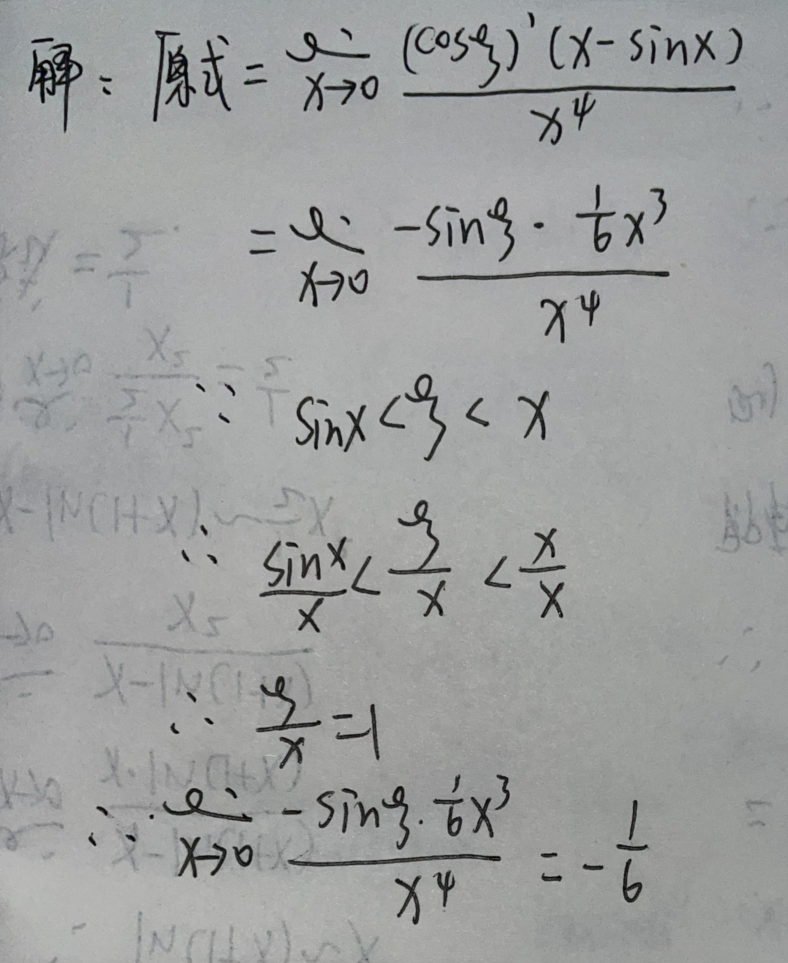 解：原式 = lim x→0 (cosξ)'(x - sinx) / x⁴
= lim x→0 -sinξ · 1/6 x³ / x⁴
∵ sinx < ξ < x
∴ sinx/x < ξ/x < x/x
∴ ξ/x = 1
∴ lim x→0 -sinξ · 1/6 x³ / x⁴ = -1/6